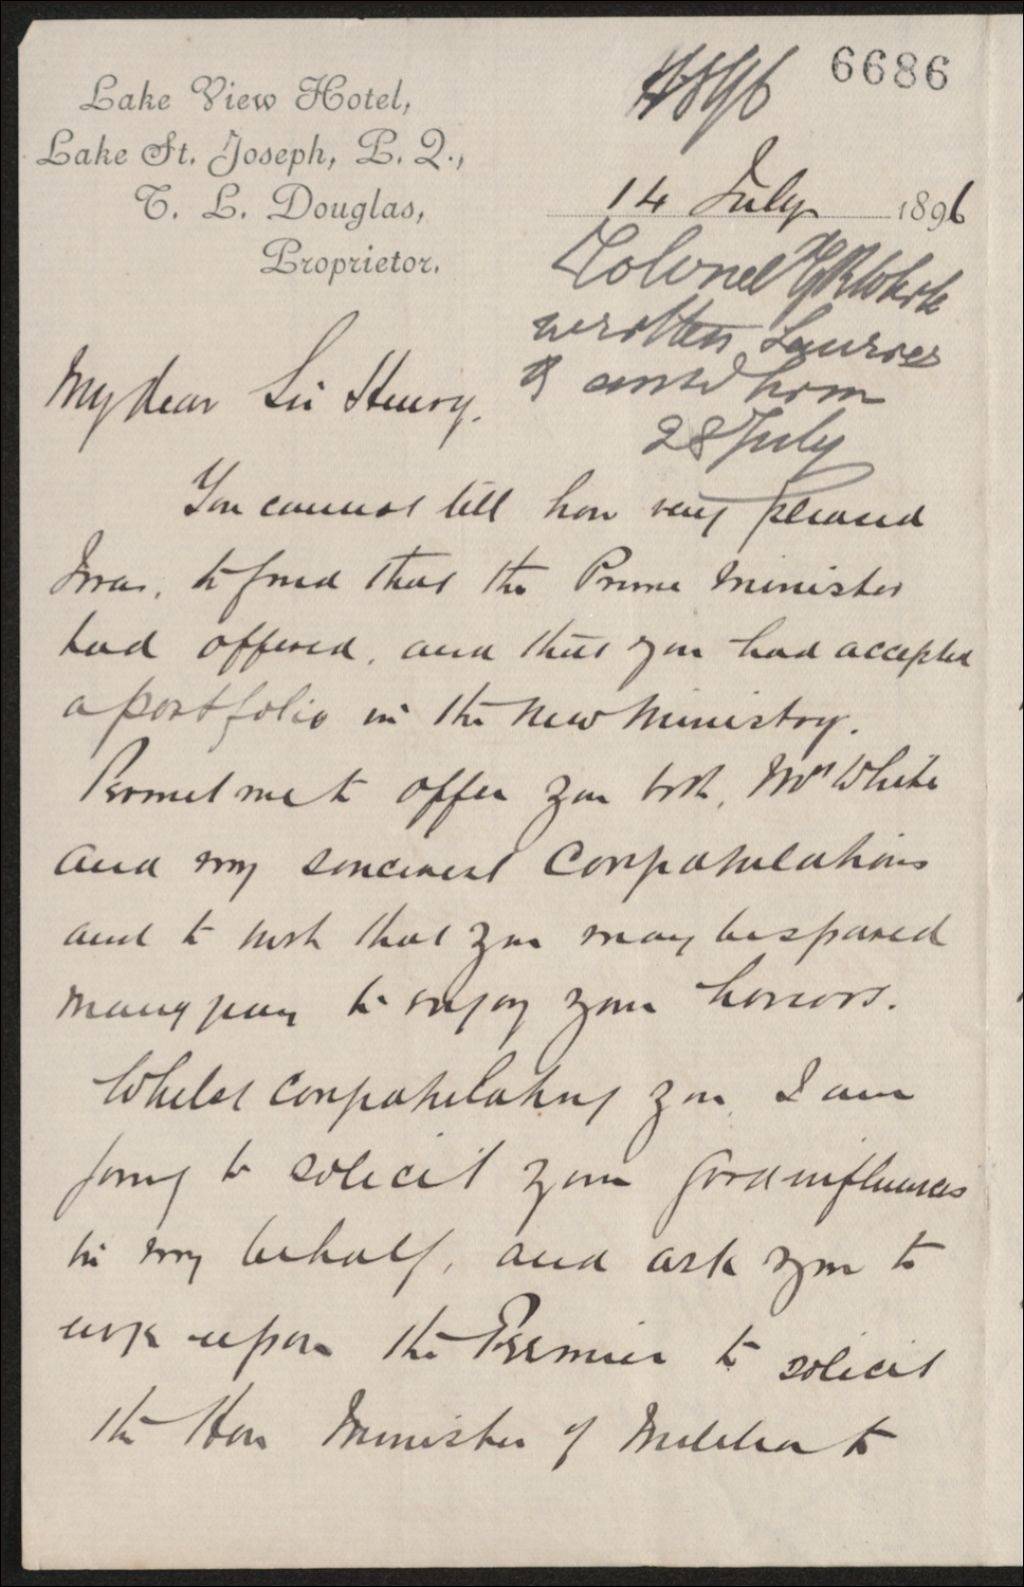 6686
Lake View Hotel,
Lake St. Joseph, P. Q.,
T. L. Douglas,
Proprietor.
14 July 1896
Colonel White
written Laurier
& ansd him
28 July
My dear Sir Henry.
You cannot tell how very pleased
I was, to find that the Prime Minister
had offered, and that you had accepted
a portfolio in the new Ministry.
Permit me to offer you both, Mrs White
and my sincerest Congratulations
and to wish that you may be spared
many years to enjoy your honors.
Whilst congratulating you, I am
going to solicit your good influences
in my behalf, and ask you to
urge upon the Premier to solicit
the Hon Minister of Militia to